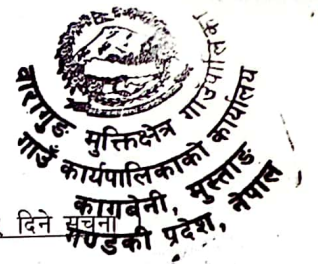 वारागुङ मुक्तिक्षेत्र गाउँपालिका
गाउँ कार्यपालिकाको कार्यालय
कागबेनी, मुस्ताङ
गण्डकी प्रदेश, नेपाल
दिने सूचना